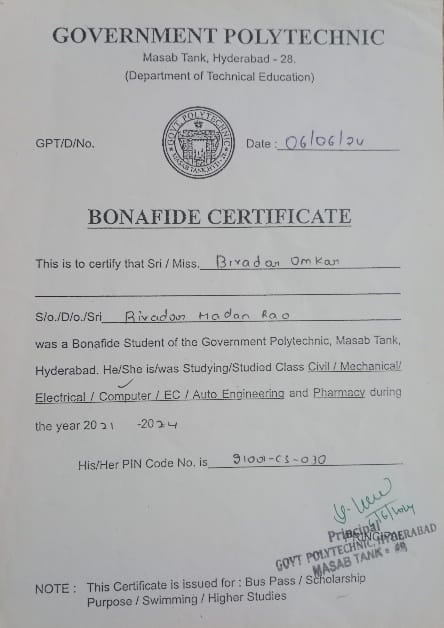 GOVERNMENT POLYTECHNIC
Masab Tank, Hyderabad - 28.
(Department of Technical Education)
GPT/D/No.
GOVT. POLYTECHNIC
MASAB TANK, HYD
Date : 06/06/24
BONAFIDE CERTIFICATE
This is to certify that Sri / Miss. Biradar Omkar
S/o./D/o./Sri Biradar Madan Rao
was a Bonafide Student of the Government Polytechnic, Masab Tank,
Hyderabad. He/She is/was Studying/Studied Class Civil / Mechanical/
Electrical / Computer / EC / Auto Engineering and Pharmacy during
the year 2021 -2024
His/Her PIN Code No. is 91001-CS-030
Principal
PRINCIPAL
GOVT POLYTECHNIC, HYDERABAD
MASAB TANK
NOTE : This Certificate is issued for : Bus Pass / Scholarship
Purpose / Swimming / Higher Studies